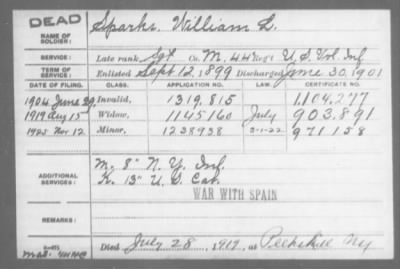 DEAD
NAME OF SOLDIER: Sparks, William L.
SERVICE: Late rank Sgt Co. M, 44 Reg't U.S. Vol. Inf
TERM OF SERVICE: Enlisted Sept 12, 1899 Discharged June 30, 1901
DATE OF FILING. CLASS. APPLICATION NO. LAW. CERTIFICATE NO.
1904 June 29 Invalid, 1319,815 1,104,277
1919 Aug 15 Widow, 1145160 July 903.891
1925 Nov 12 Minor, 1238938 5-1-22 971158
ADDITIONAL SERVICES: M. 8" N.Y. Inf.
K. 13" U.S. Cav.
WAR WITH SPAIN
REMARKS:
Died July 28, 1919, at Peekskill Ny